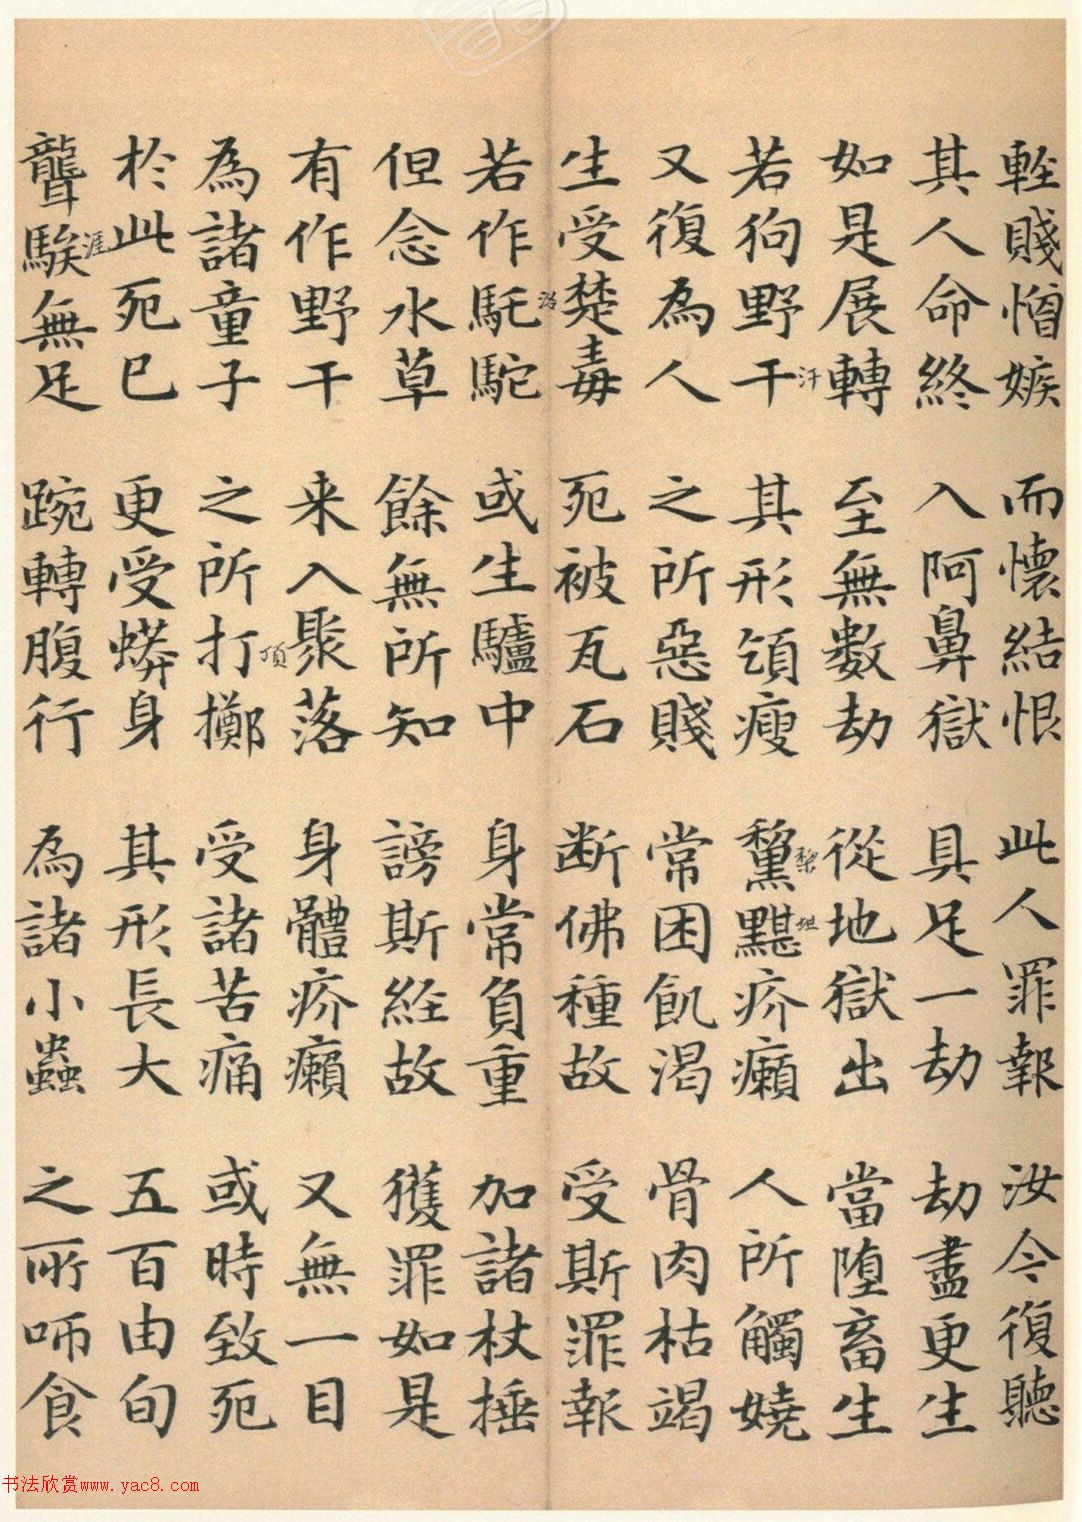 輕賤憎嫉 而懷結恨 此人罪報 汝今復聽
其人命終 入阿鼻獄 具足一劫 劫盡更生
如是展轉 至無數劫 從地獄出 當墮畜生
若狗野干汗 其形頜瘦 黧黎黮坦疥癩 人所觸嬈
又復為人 之所惡賤 常困飢渴 骨肉枯竭
生受楚毒 死被瓦石 断佛種故 受斯罪報
若作馲洛駝 或生驢中 身常負重 加諸杖捶
但念水草 餘無所知 謗斯經故 獲罪如是
有作野干 来入聚落 身體疥癩 又無一目
為諸童子 之所打頂擲 受諸苦痛 或時致死
於此死已 更受蟒身 其形長大 五百由旬
聾騃涯無足 踠轉腹行 為諸小蟲 之所咂食
书法欣赏www.yac8.com